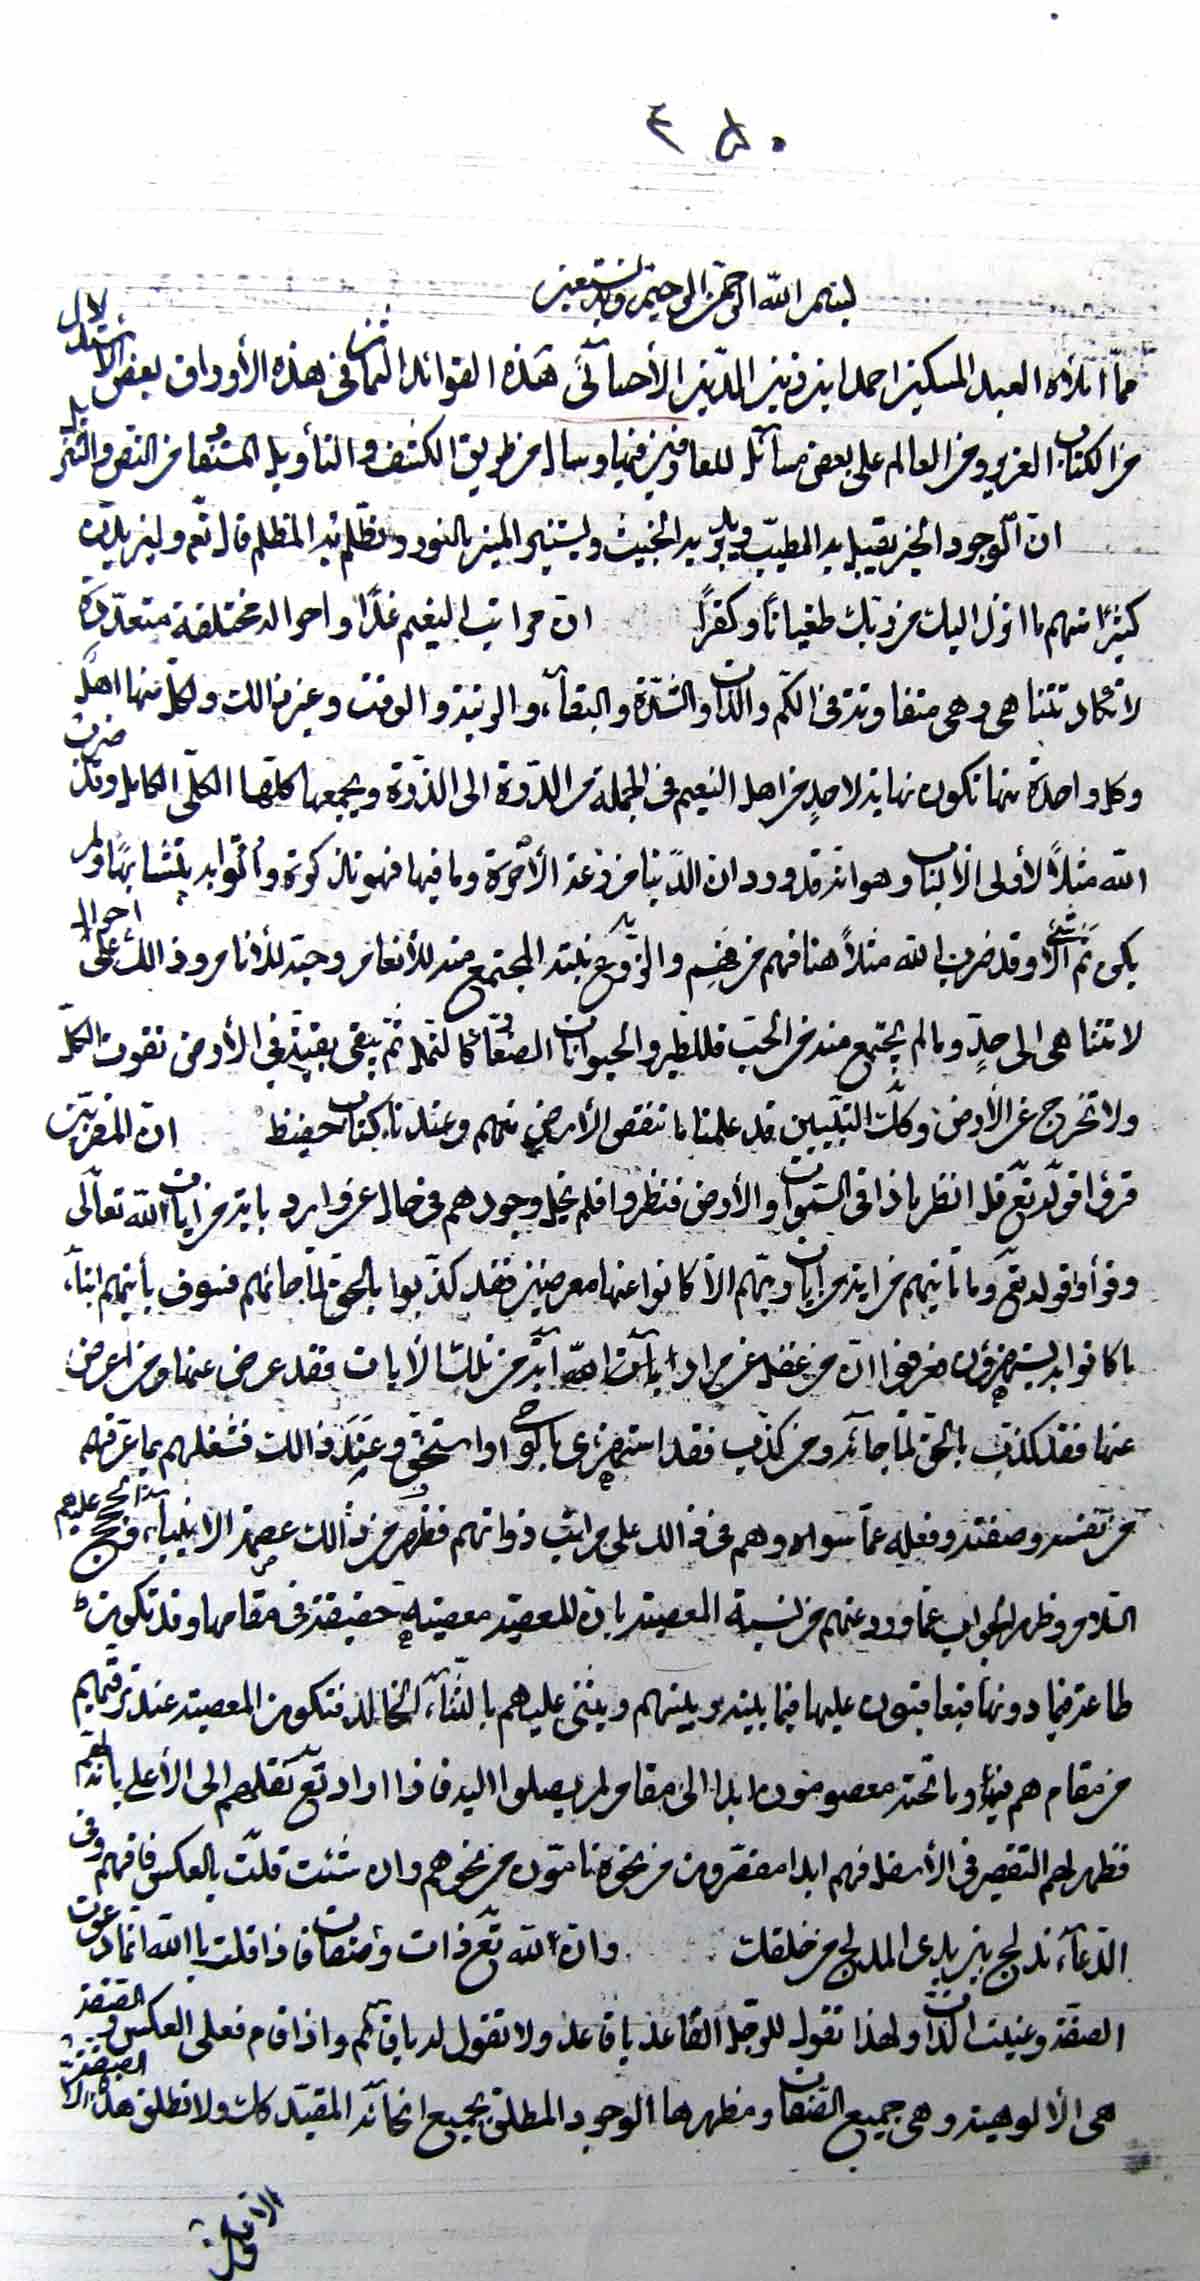 بسم الله الرحمن الرحيم وبه نستعين
مما املاه العبد المسكين احمد ابن زين الدين الأحسائي هذه الفوائد الثمان في هذه الأوراق بعض الاستدلال
من الكتاب العزيز ومن العالم على بعض مسائل للعارفين فيها وسائل من طريق الكشف والتأويل المستفا من النص والتنزيل
ان الوجود الخير يقبل به الطيب ويرد به الخبيث ويستنير المنير بالنور ويظلم به المظلم قال تع وليزيدن
كثيرًا منهم ما انزل اليك من ربك طغيانًا وكفرًا ان مراتب النعيم غدًا واحواله مختلفة متعددة
لا تكاد تتناهى وهي متفاوتة في الكم والذات والشدة والبقاء والرتبة والوقت وغير ذالك ولكل منها اهل
وكل واحدة منها تكون نهاية لاحدٍ من اهل النعيم في الجملة من الدرة الى الذرة ويجمعها كلها الكلى الكامل وقد ضرب
الله مثلاً لأولى الألباب وهو انه قد ورد ان الدنيا مزرعة الأخرة وما فيها فهو تذكرة وأتوا به متشابهًا ولم
يكن ثم شئ الا وقد ضرب الله مثلاً هنا فهم من فهم والزرع نبته المجتمع منه للأنعام وحبه للأنام وذالك على احوال
لا تتناهى الى حدٍ وما لم يجتمع منه من الحب فللطير والحيوانات الضعاف كالنمل ثم يبقى بقية في الأرض تفوت الكل
ولا تخرج عن الأرض وكلت التبيين قد علمنا ما تنقص الأرض منهم وعندنا كتاب حفيظ ان المقربين
قرؤا قوله تع قل انظر ماذا في السموات والأرض فنظروا فلم يخل وجودهم في حال عن وارد باية من ايات الله تعالى
وقرأوا قوله تع وما تأتيهم من اية من ايات ربهم الا كانوا عنها معرضين فقد كذبوا بالحق لما جائهم فسوف يأتيهم انباء
ما كانوا به يستهزؤن فعرفوا ان من غفل عن مراد اية من تلك الأيات فقد عرض عنها ومن اعرض
عنها فقد كذب بالحق لما جائه ومن كذب فقد استهزئ او استحق وعيد ذالك فشغلهم بما عرفهم
من نفسه وصفته وفعله عما سواه وهم في ذالك على مراتب ذواتهم فظهر من ذالك عصمة الانبياء والحجج عليهم
السلام وظهر الجواب عما ورد عنهم من نسبة المعصية بان للمعصية معصية حقيقة في مقامها وقد تكون
طاعة فيما دونها فيعاقبون عليها فيما بينه وبينهم ويثنى عليهم بالثناء الخالد فتكون المعصية عند ترقيهم
من مقام هم فيه وما تحته معصومون ابدا الى مقام لم يصلوا اليه فاذا اراد تع نقلهم الى الأعلى
فظهر لهم التقصير في الأسفل فهم ابدا مقصرون من نحوه تامون من نحوهم وان شئت قلت بالعكس فافهم وفى
الدعاء تدلج بين يدى المدلج من خلقك وان الله تع ذات وصفات فاذا قلت يا الله انما دعوت
الصفة وعنيت الذات ولهذا تقول للرجل القاعد يا قاعد ولا تقول له يا قائم واذا قام فعلى العكس والصفة
هي الألوهية وهي جميع الصفات ومظهرها الوجود المطلق بجميع انحائه المقيد كلت ولا تطلق هذه الصفة